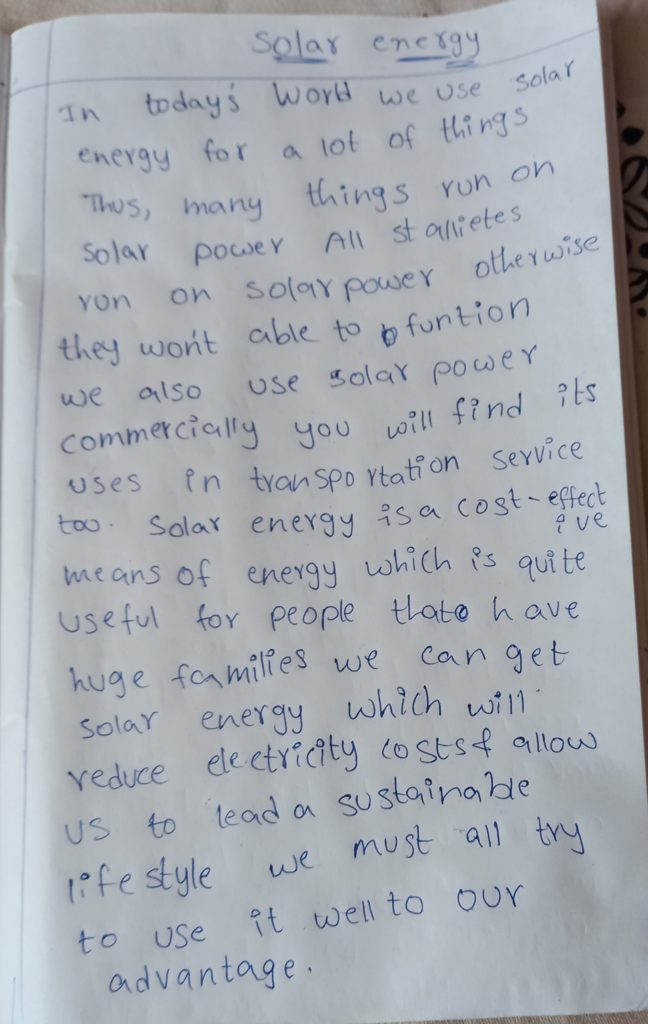 Solar energy
In today's World we use solar
energy for a lot of things
Thus, many things run on
solar power All stallietes
run on solar power otherwise
they won't able to funtion
we also use solar power
commercially you will find its
uses in transportation service
too. Solar energy is a cost-effect
ive
means of energy which is quite
useful for people that have
huge families we can get
solar energy which will
reduce electricity costs & allow
us to lead a sustainable
lifestyle we must all try
to use it well to our
advantage.